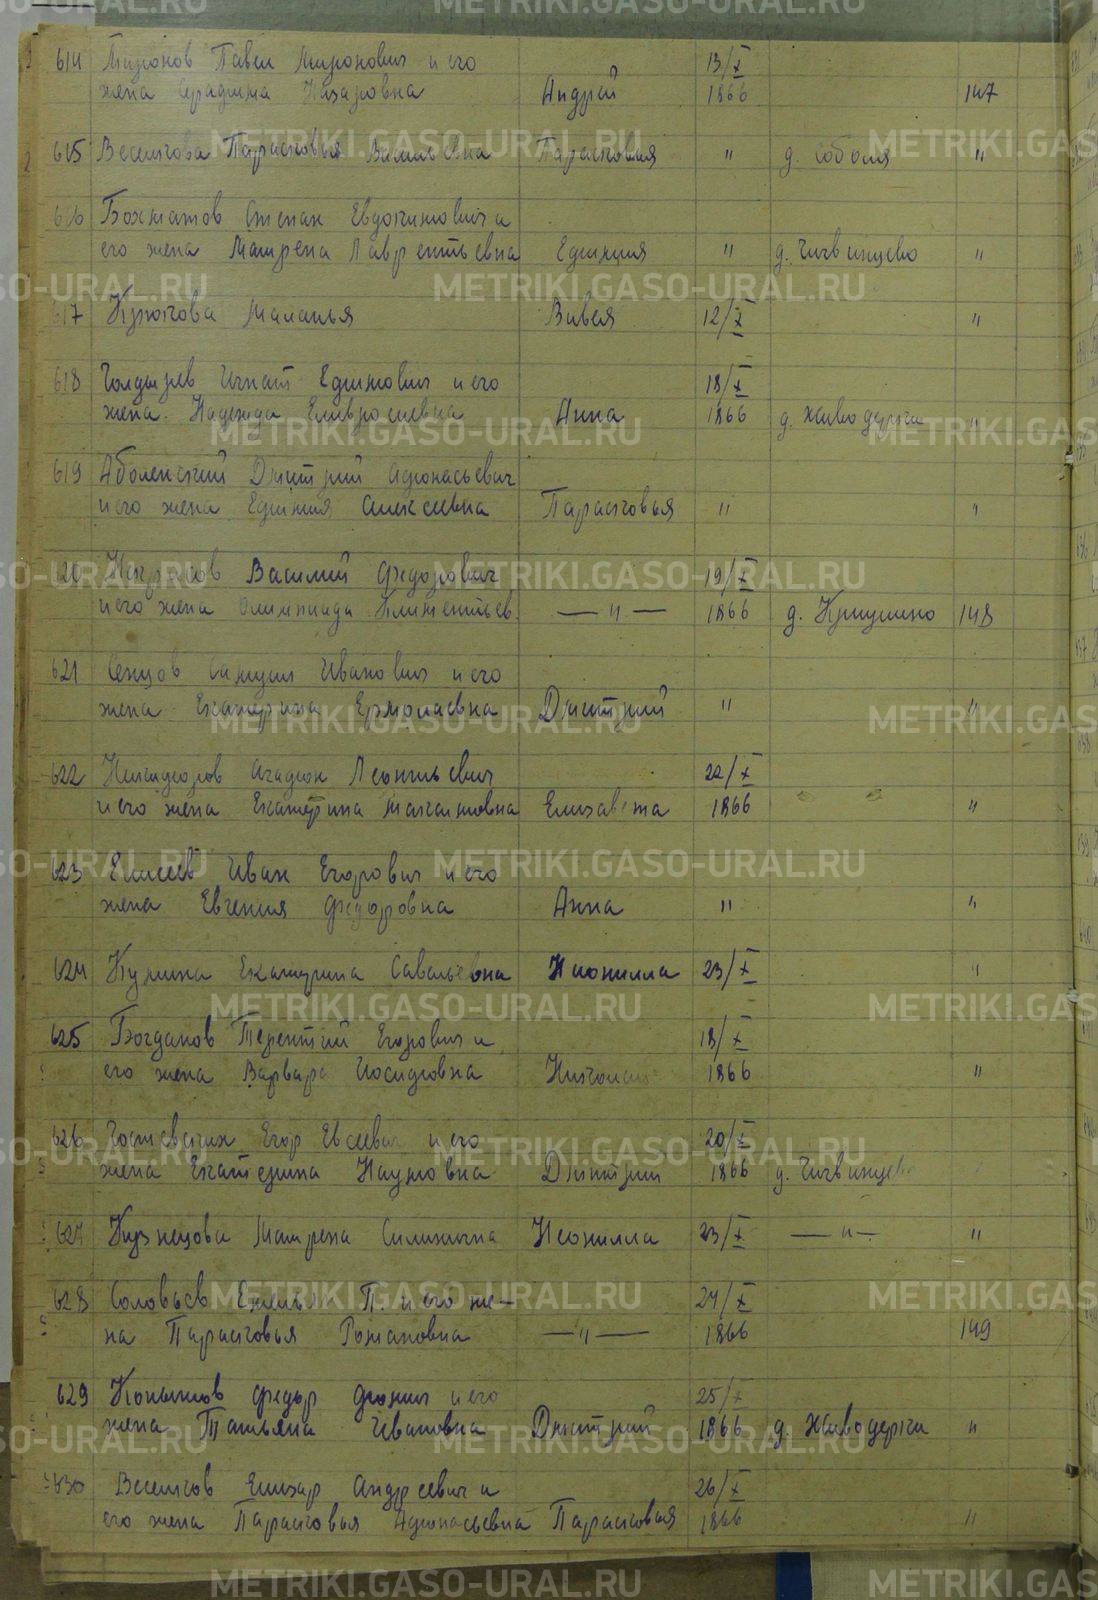 614 Миронов Павел Миронович и его 13/X
жена Серафима Назаровна Андрей 1866 147
615 Веселкова Парасковья Васильевна Парасковья " д. Соболя "
616 Бохматов Степан Евдокимович и
его жена Матрена Лаврентьевна Ефимия " д. Чигвинцево "
617 Крюкова Маланья Вивея 12/X "
618 Голдырев Игнат Ефимович и его 18/X
жена Надежда Амвросиевна Анна 1866 д. Живодерка "
619 Аболенский Дмитрий Афонасьевич
и его жена Ефимия Алексеевна Парасковья " "
620 Некрасов Василий Федорович 19/X
и его жена Олимпиада Климентьев. —"— 1866 148
621 Сенцов Иванович и его
жена Екатерина Ермолаевна Дмитрий " "
622 Никифоров Агафон Леонтьевич 22/X
и его жена Екатерина Максимовна Елизавета 1866 "
623 Елисеев Иван Егорович и его
жена Евгения Федоровна Анна " "
624 Екатерина Савельевна Неонилла 23/X "
625 Богданов Терентий Егорович и 18/X
его жена Варвара Иосифовна Николай 1866 "
626 Егор Евсеевич и его 20/X
жена Екатерина Наумовна Дмитрий 1866 д. Чигвинцево
627 Кузнецова Матрена Неонилла 23/X —"— "
628 Соловьев П. и его же-
24/X
на Парасковья Романовна —"— 1866 149
629 Копытов Федор и его 25/X
жена Татьяна Ивановна Дмитрий 1866 д. Живодерка "
630 Веселков Елизар Андреевич и 26/X
его жена Парасковья Афонасьевна Парасковья 1866 "
METRIKI.GASO-URAL.RU